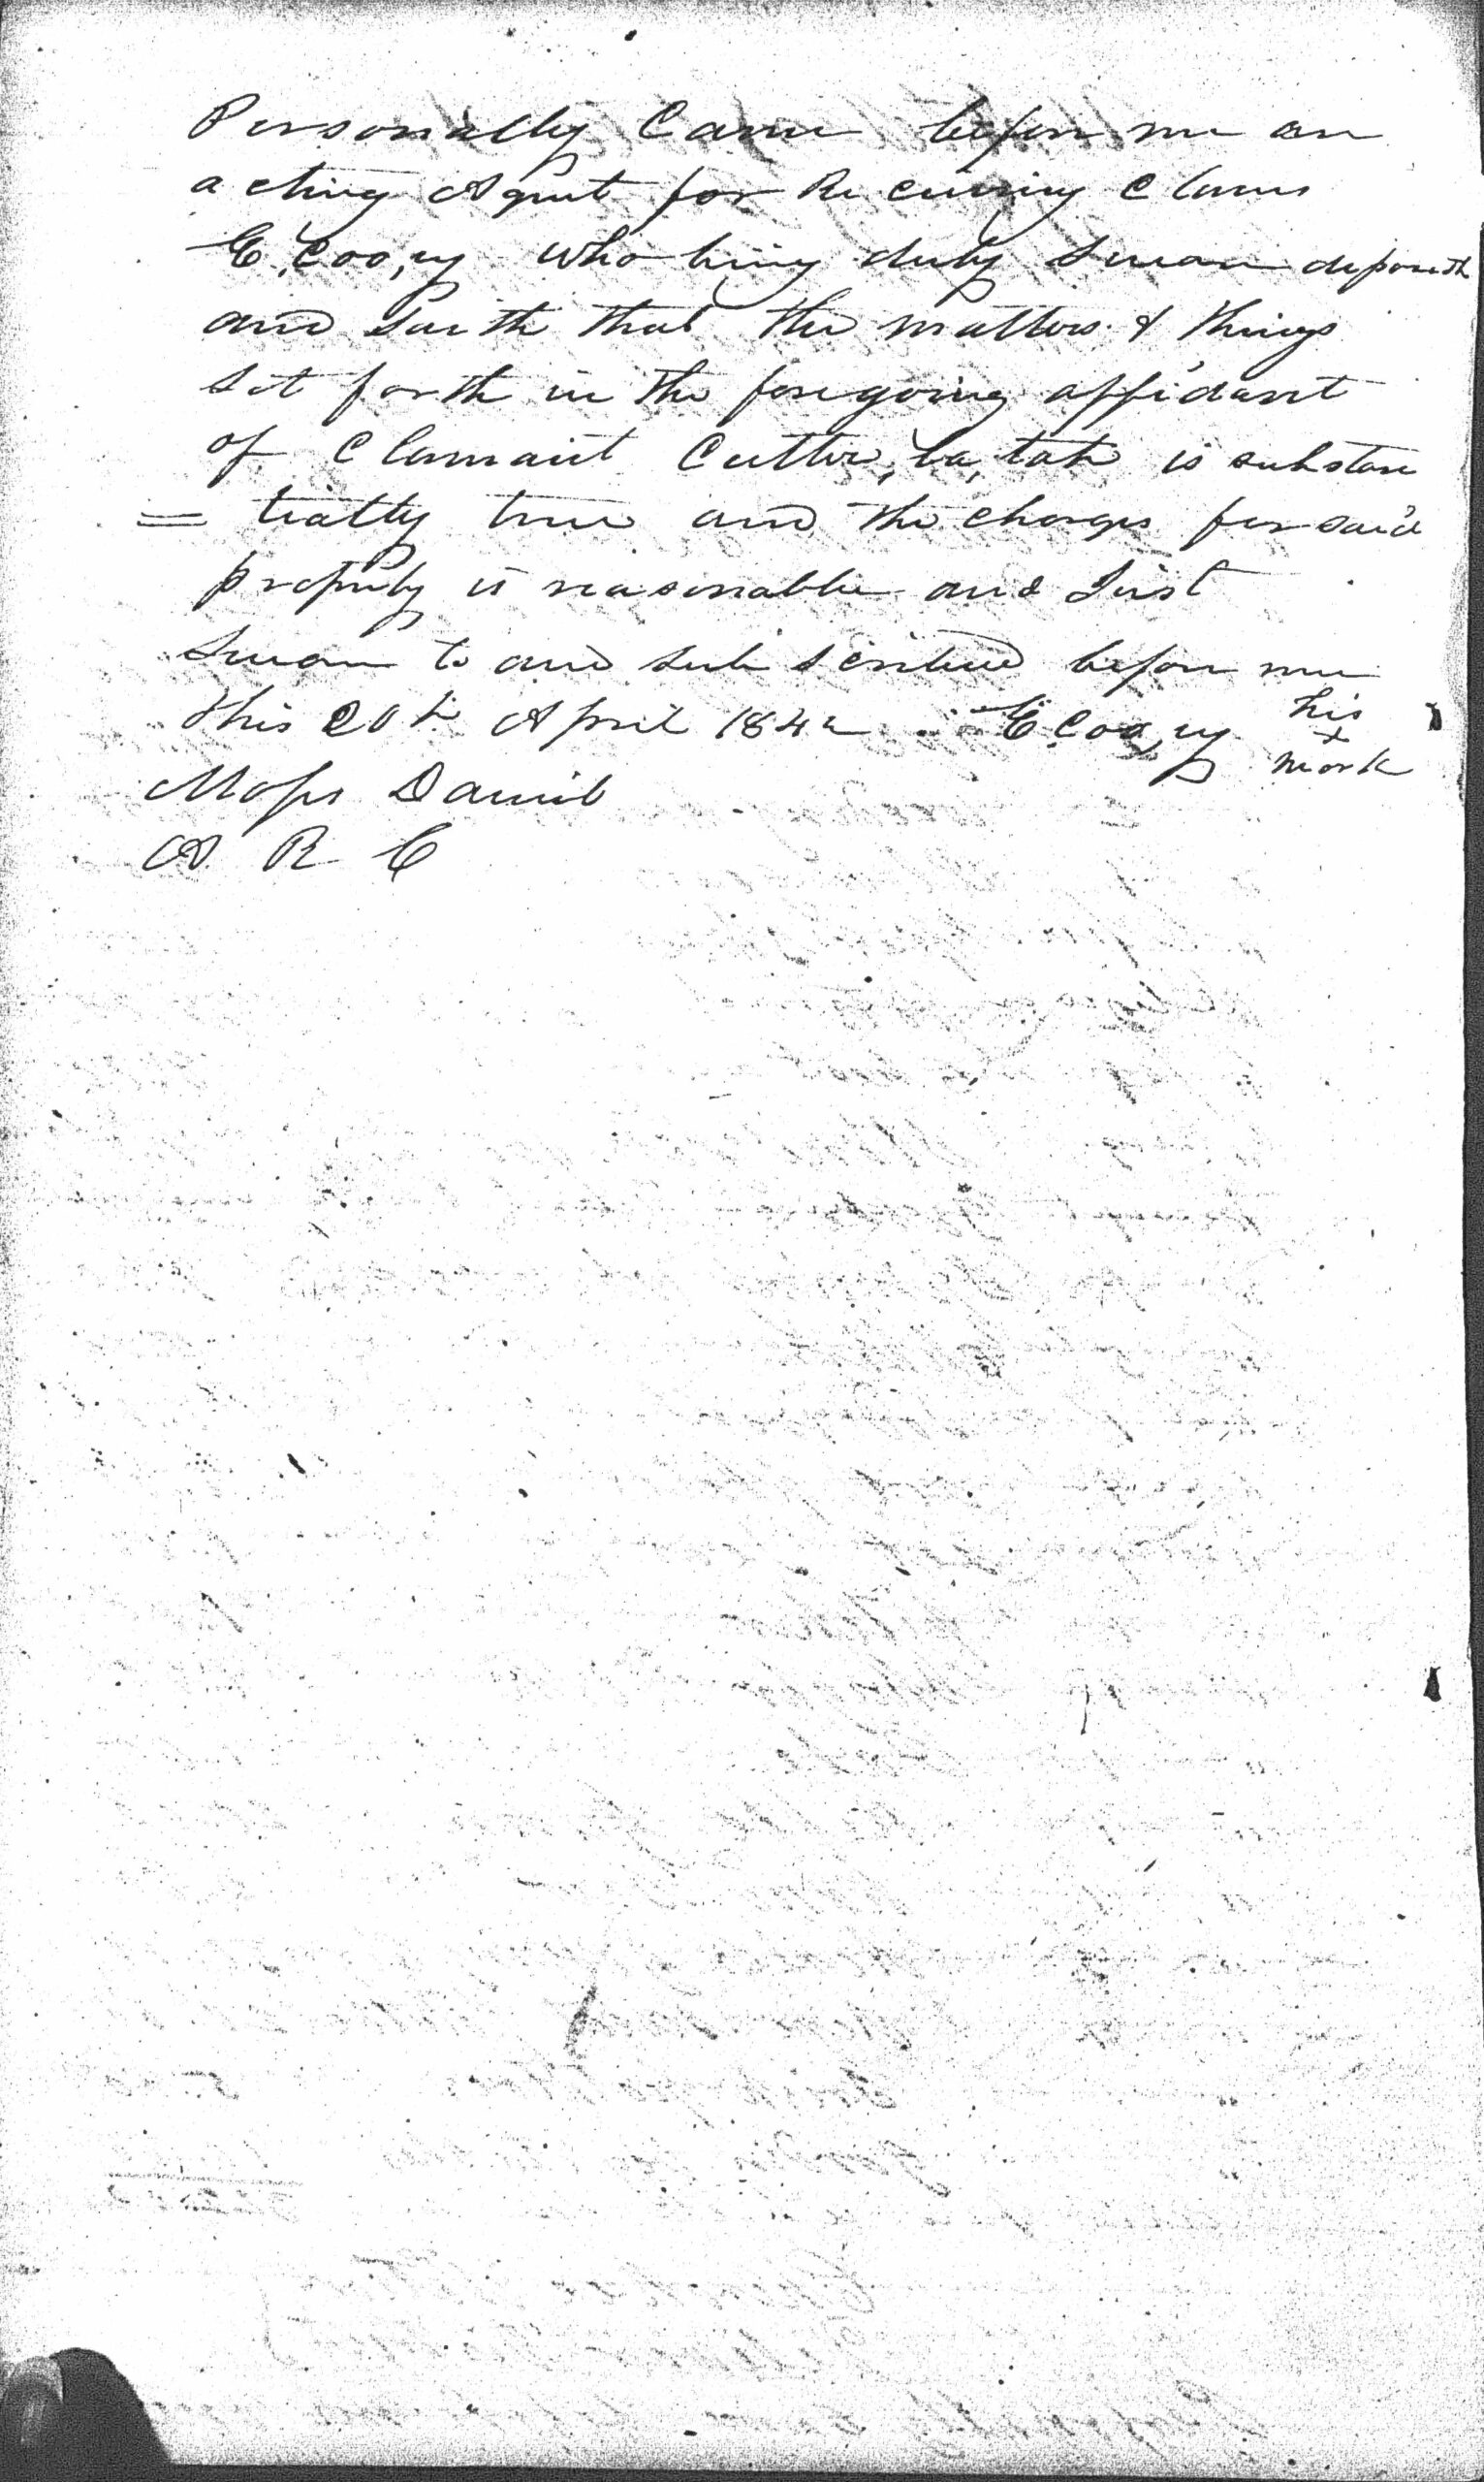 Personally Came before me an
acting Agent for Receiving Claims
E,coo,ey who being duly sworn deposeth
and saith that the matters & things
set forth in the foregoing affidavit
of Clamaint Cutter,la,tah is substan
= tially true and the charges for said
property is reasonable and Just
Sworn to and subscribed before me
this 20th April 1842 E,coo,ey his
x
mark
Moses Daniel
A R C